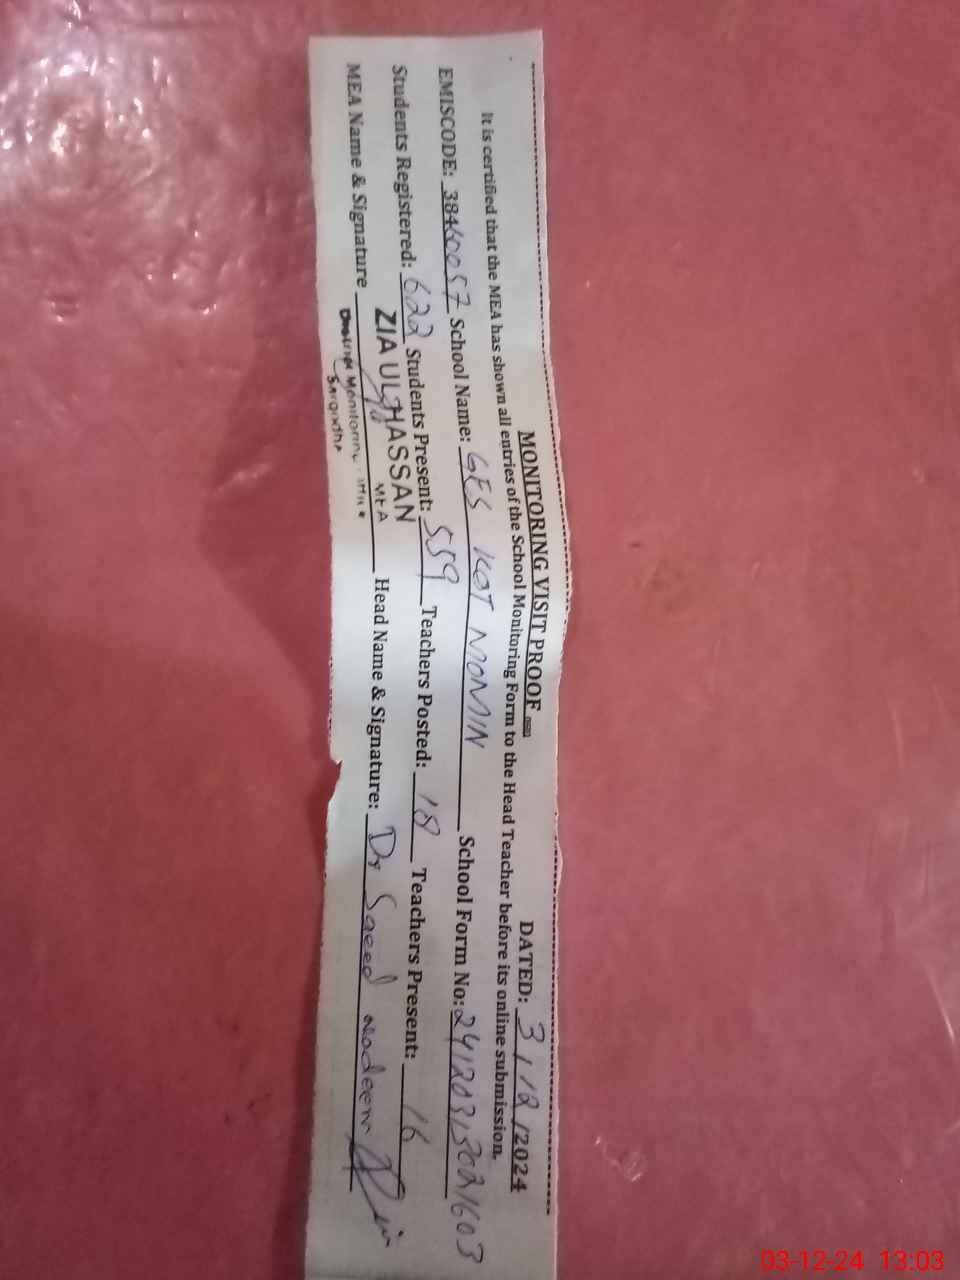 MONITORING VISIT PROOF DATED: 3/12/2024
It is certified that the MEA has shown all entries of the School Monitoring Form to the Head Teacher before its online submission.
EMISCODE: 38460057 School Name: GES KOT MOMIN School Form No: 24120313021603
Students Registered: 622 Students Present: 559 Teachers Posted: 18 Teachers Present: 16
MEA Name & Signature Head Name & Signature: Dr Saeed Nadeem
ZIA UL HASSAN
MEA
District Monitoring
Sargodha
03-12-24 13:03